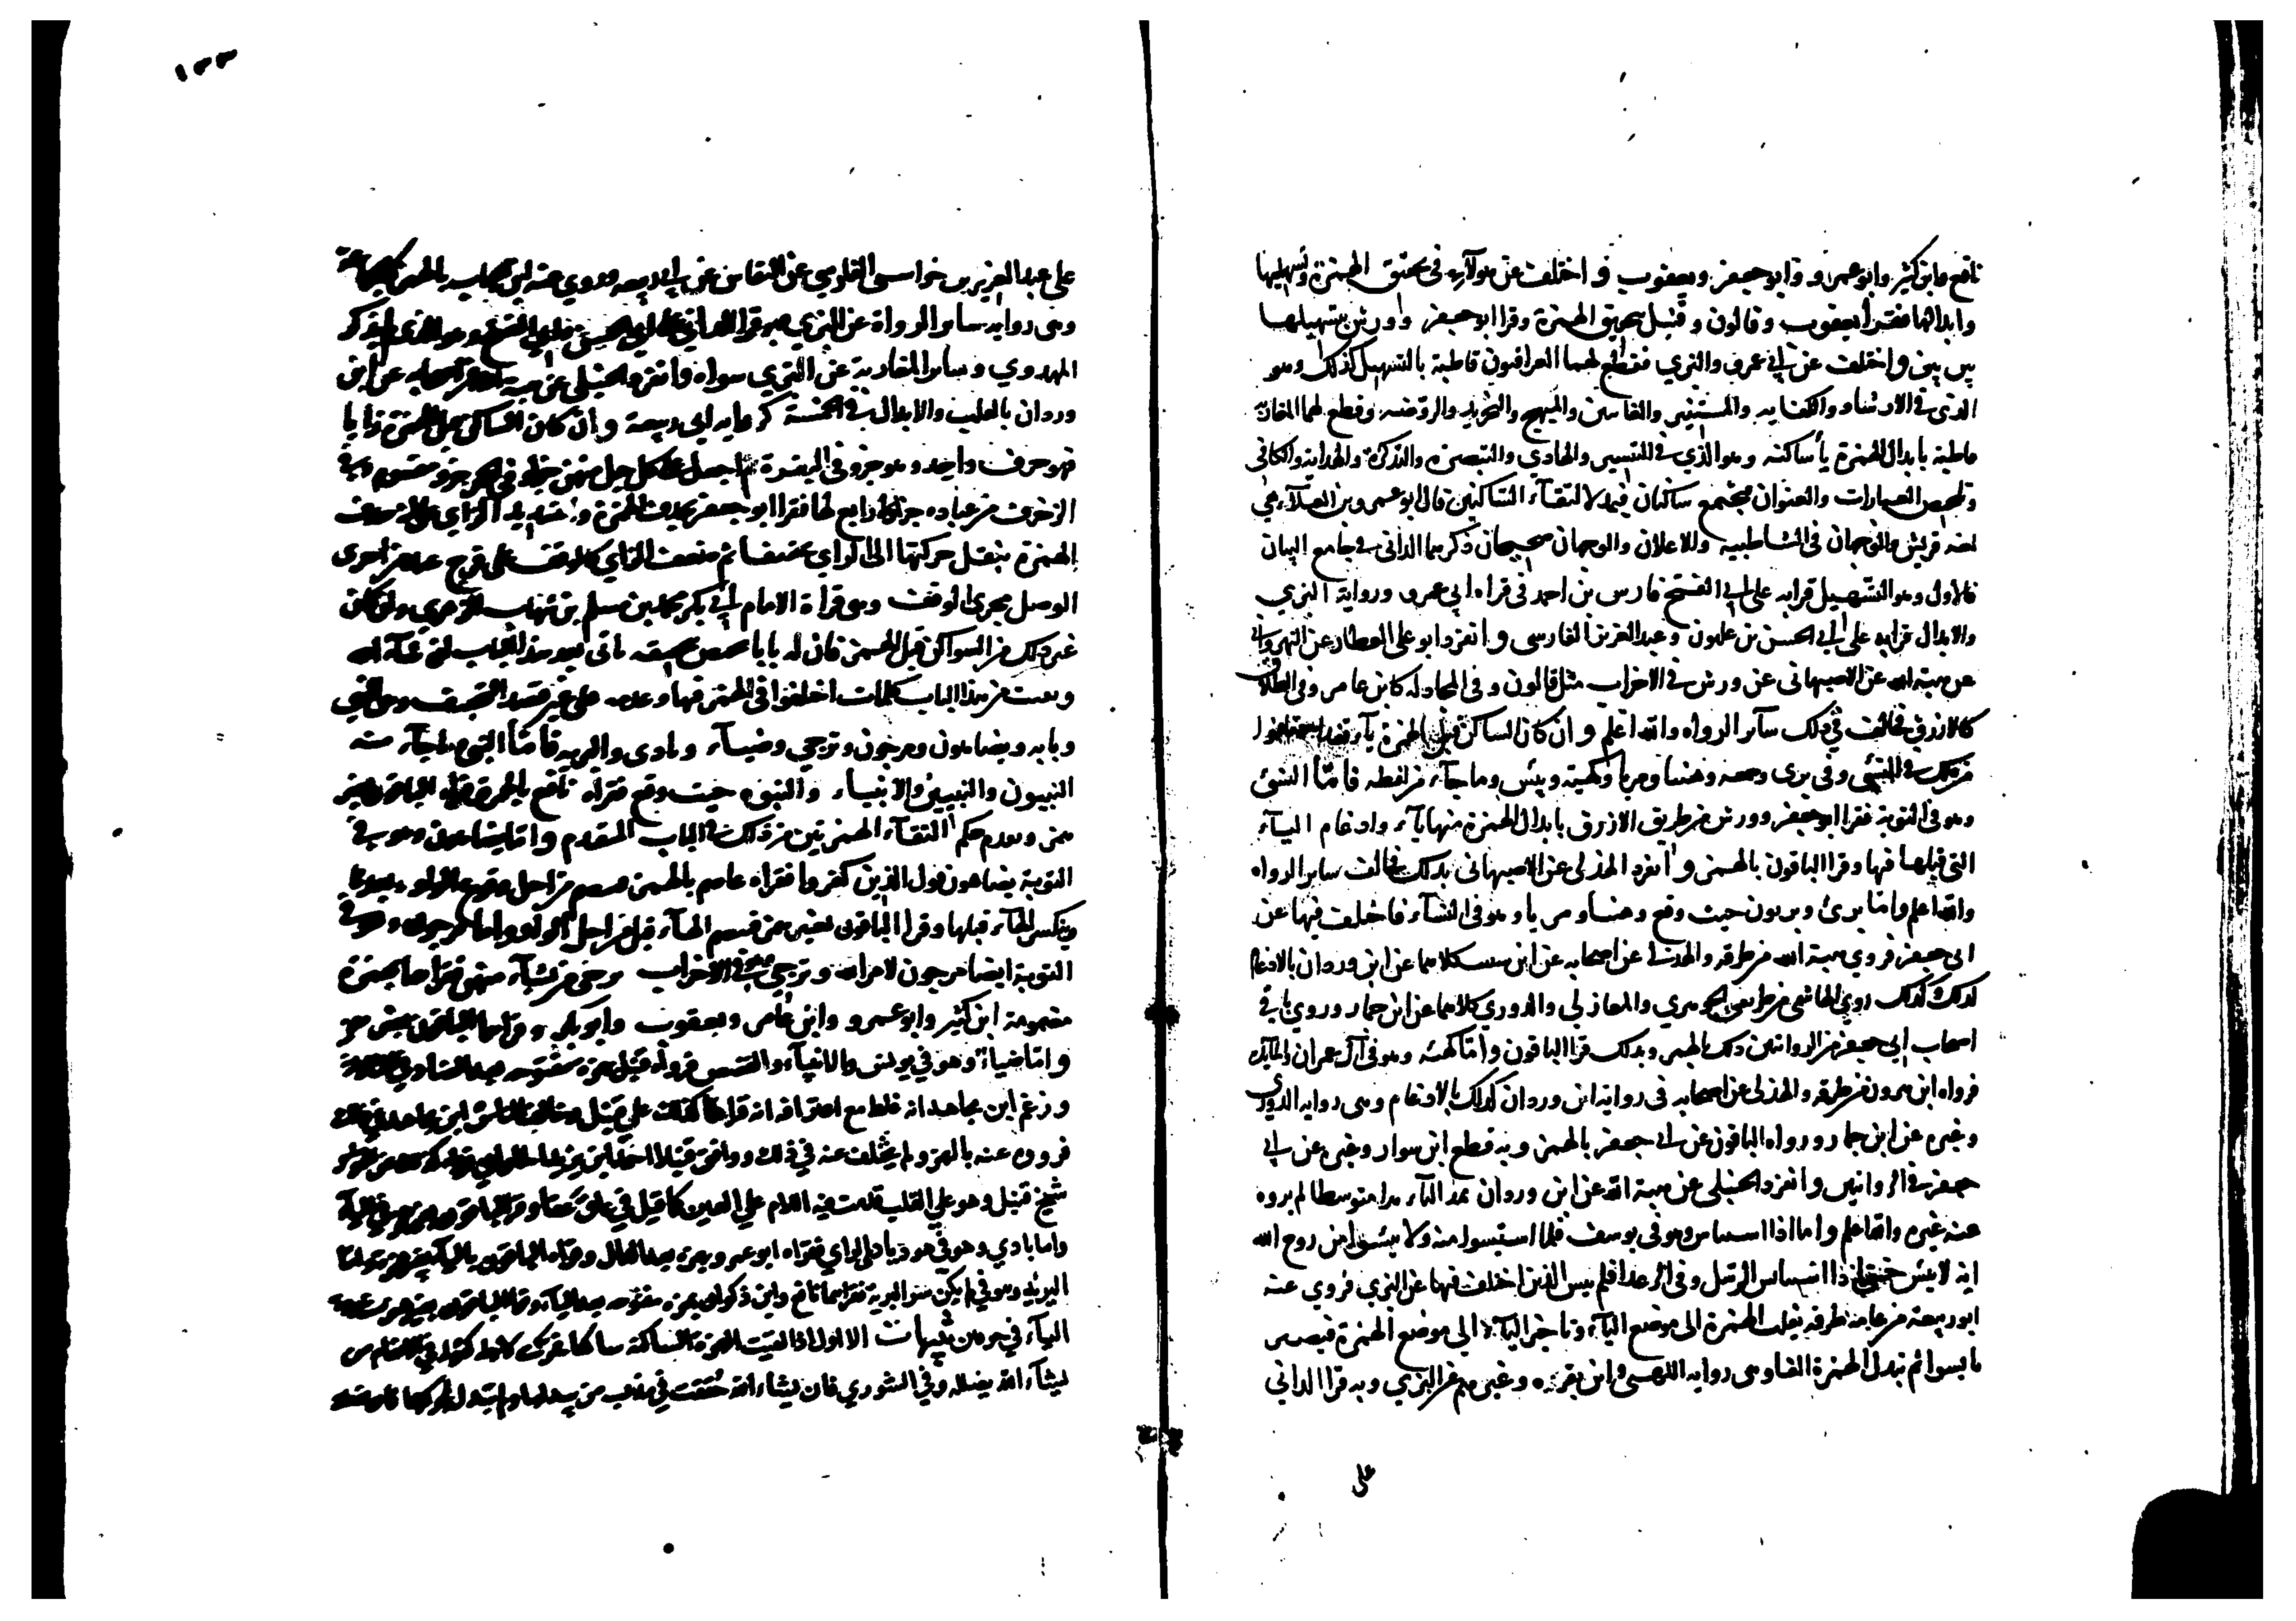 نافع وابن كثير وابو عمرو وابو جعفر ويعقوب واختلف عن هولآء في تحقيق الهمزة وتسهيلها
وابدالها فقرأ يعقوب وقالون وقنبل بتحقيق الهمزة وقرا ابو جعفر وورش بتسهيلها
بين بين واختلف عن ابي عمرو والبزي فقطع لهما العراقيون قاطبة بالتسهيل كذلك وهو
الذي في الارشاد والكفايه والمستنير والغايتين والمبهج والتجريد والروضه وقطع لهما المغاربه
قاطبة بابدال الهمزة يأ ساكنه وهو الذي في التيسير والهادي والتبصره والتذكرة والهدايه والكافي
وتلخيص العبارات والعنوان فيجتمع ساكنان فيمد لالتقآء الساكنين قال ابو عمرو بن العلآء هي
لغه قريش والوجهان في الشاطبيه والاعلان والوجهان صحيحان ذكرهما الداني في جامع البيان
فالاول وهو التسهيل قرابه على ابي الفتح فارس بن احمد في قراه ابي عمرو ورواية البزي
والابدال قرابه على ابي الحسن بن غلبون وعبد العزيز الفارسي وانفرد ابو على العطار عن النهرواني
عن هبة الله عن الاصبهاني عن ورش في الاحزاب مثل قالون وفي المجادله كابن عامر وفي الطلاق
كالازرق فخالف في ذلك سآير الرواه والله اعلم وان كان الساكن قبل الهمزة يآء فقد اختلفوا
من ذلك في النسئ وفي برى وجمعه وهنيا ومريا وكهيئة ويئس وما جآء من لفظه فامّا النسئ
وهو في التوبة فقرا ابو جعفر وورش من طريق الازرق بابدال الهمزة منها يآء وادغام اليآء
التي قبلها فيها وقرا الباقون بالهمز وانفرد الهذلي عن الاصبهاني بذلك فخالف ساير الرواه
والله اعلم وامّا برئ وبريون حيث وقع وهنيا ومريا وهو في النسآء فاختلف فيها عن
ابي جعفر فروي هبة الله من طرقه والهذلي عن اصحابه عن ابن شبيب كلاهما عن ابن وردان بالادغام
كذلك وكذلك روي الهاشمي من طريق الجوهري والمغازلي والدوري كلاهما عن ابن جماز وروي باقي
اصحاب ابي جعفر من الروايتين ذلك بالهمز وبذلك قرا الباقون وامّا كهيئه وهو في آل عمران والمائده
فرواه ابن هرون من طرقه والهذلي عن اصحابه في روايه ابن وردان كذلك بالادغام وهي روايه الدوري
وغيره عن ابن جماز ورواه الباقون عن ابي جعفر بالهمز وبه قطع ابن سوار وغيره عن ابي
جعفر في الروايتين وانفرد الحنبلي عن هبة الله عن ابن وردان بمد اليآء مدا متوسطا لم يروه
عنه غيره والله اعلم واما اذا استياس وهو في يوسف فلما استيسوا منه ولا تيئسوا من روح الله
انه لا يئس حتي اذا استياس الرسل وفي الرعد افلم ييس الذين اختلف فيها عن البزي فروي عنه
ابو ربيعة من عامة طرقه بقلب الهمزة الى موضع اليآء وتاخير اليآء الى موضع الهمزة فيصير
يايسوا ثم تبدل الهمزة الفا وهي روايه اللهبي وابن بقره وغيرهم عن البزي وبه قرا الداني
على
١٣٣
على عبد العزيز بن خواستي الفارسي عن النقاش عن ابي ربيعه وروي عنه ابن الحباب بالهمز كالجماعة
وهي روايه ساير الرواة عن البزي وبه قرا الداني علي ابي الحسن وابي الفتح وهو الذي لم يذكر
المهدوي وساير المغاربة عن البزي سواه وانفرد الحنبلي عن هبة الله عن اصحابه عن ابن
وردان بالقلب والابدال في الخمسة كرواية ابي ربيعة وان كان الساكن قبل الهمزة زايا
فهو حرف واحد وهو جزو في البقرة ثم اجعل على كل جبل منهن جزا وفي الحجر جزو مقسوم وفي
الزخرف من عباده جزاً ولا رابع لها فقرا ابو جعفر بحذف الهمزة وتشديد الزاي على انه حذف
الهمزة بنقل حركتها الى الزاي تخفيفا ثم ضعف الزاي كالوقف على فرج عند من اجرى
الوصل مجرى الوقف وهي قراة الامام ابي بكر محمد بن مسلم بن شهاب الزهري وان كان
غير ذلك من السواكن قبل الهمز فان له بابا يختص بتخفيفه ياتى بعد هذا الباب ان شآء الله
وبقيت من هذا الباب كلمات اختلفوا في الهمز فيها وعدمه على غير قصد التخفيف وهي النبي
وبابه ويضاهون ومرجون وترجي وضيآء وبادى والبريه فامّا النبي وما جآء منه
النبيون والنبيين والانبيآء والنبوه حيث وقع فقراه نافع بالهمز وقراه الباقون بغير
همز وتقدم حكم التقآء الهمزتين من ذلك في الباب المتقدم وامّا يضاهون وهو في
التوبة يضاهون قول الذين كفروا فقراه عاصم بالهمز فيضم من اجل وقوع الواو بعدها
وينكسر الهآء قبلها وقرا الباقون بغير همز فيضم الهآء قبل من اجل الواو واما مرجون وهو في
التوبة ايضا مرجون لامر الله وترجي وهو في الاحزاب ترجي من تشآء منهن فقراهما بهمزة
مضمومة ابن كثير وابو عمرو وابن عامر ويعقوب وابو بكر وقراهما الباقون بغير همز
وامّا ضيآء وهو في يونس والانبيآء والقصص فرواه قنبل بهمزة مفتوحه بعد الضاد في الثلاثة
وزعم ابن مجاهد انه غلط مع اعترافه انه قرا كذلك على قنبل وخالف الناس ابن مجاهد في ذلك
فرووه عنه بالهمز ولم يختلف عنه في ذلك ووافق قنبلا احمد بن يزيد الحلواني فرواه كذلك عن القواس
شيخ قنبل وهو علي القلب قدمت فيه اللام علي العين كما قيل في عاق عقا وقرا الباقون بغير همز في اليآء
واما بادي وهو في هود بادي الراي فقراه ابو عمرو بهمزه بعد الدال وقراه الباقون باليآء بغير همز وامّا
البريه وهو في لم يكن شر البرية فقراهما نافع وابن ذكوان بهمزه مفتوحه بعد اليآء وقرا الباقون بغير همز مشدده
اليآء في الحرفين تنبيهات الاول اذا لقيت الهمزة الساكنة ساكنا فحركت لاجله كقوله في الانعام من
يشآء الله يضلله وفي الشوري فان يشاء الله حُققت في مذهب من يبدلها ولم تبدل لحركتها فان فصلت